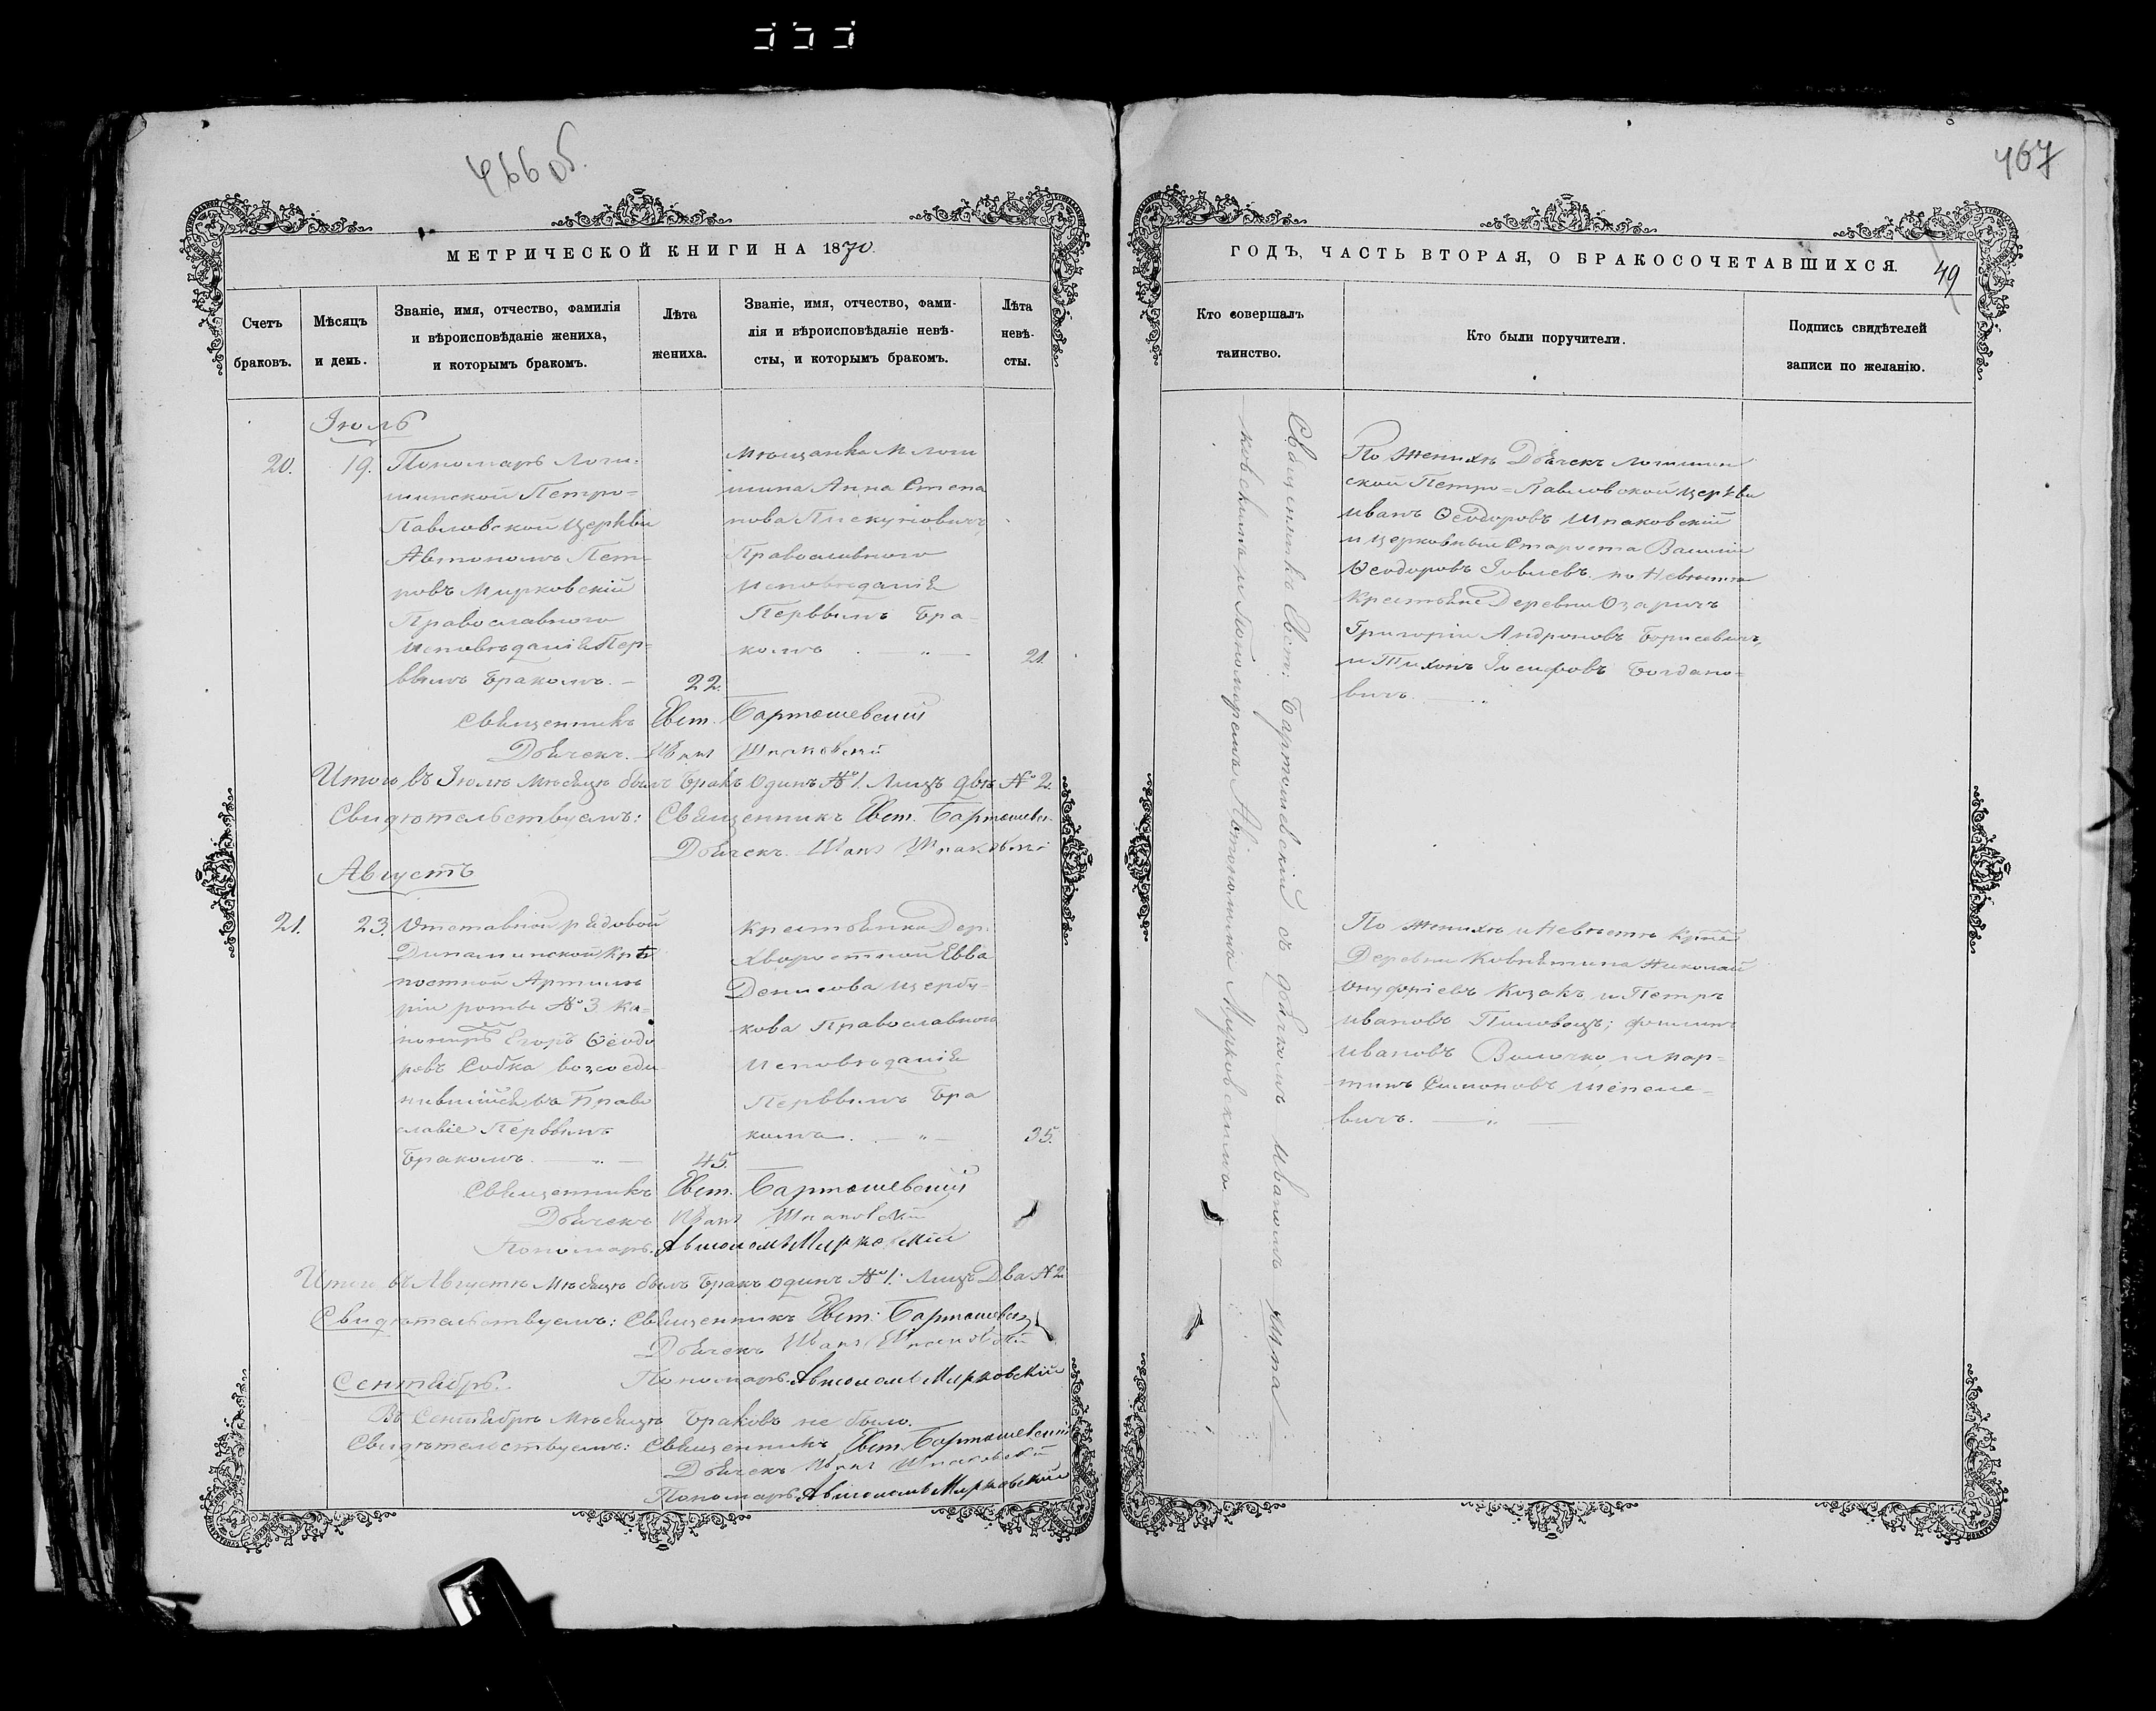 466 об.
МЕТРИЧЕСКОЙ КНИГИ НА 1870.
Счетъ
браковъ.
Мѣсяцъ
и день.
Званіе, имя, отчество, фамилія
и вѣроисповѣданіе жениха,
и которымъ бракомъ.
Лѣта
жениха.
Званіе, имя, отчество, фами-
лія и вѣроисповѣданіе невѣ-
сты, и которымъ бракомъ.
Лѣта
невѣ-
сты.
Іюль
20.
19.
Пономарь Логи-
шинской Петро=
Павловской Церкви
Автономъ Пет-
ровъ Мирковскій
Православного
исповѣданія Пер-
ввимъ бракомъ. —
22.
Мѣщанка М Логи
шина Анна Степа
нова Пискуновичъ
Православного
исповѣданія
Перввимъ бра-
комъ
21.
Священникъ Евст. Бартошевскій
Дьячекъ Иванъ Шпаковскій
Итого въ Іюлѣ мѣсяцѣ былъ бракъ одинъ № 1. Лицъ двѣ № 2.
Свидѣтельствуемъ: Священникъ Евст. Бартошевск
Дьячекъ Иванъ Шпаковскій
Августъ
21.
23.
Отставной рядовой
Динаминской Крѣ
постной Артилле
ріи роты № 3 ка-
нониръ Егоръ Ѳеодо
ровъ Собка возсоеди
нившійся въ Право
славіе Перввимъ
бракомъ.
45.
Крестьянка Дер.
Хворостной Евва
Денисова Щербу-
кова Православного
исповѣданія
Перввимъ бра
комъ.
35.
Священникъ Евст. Бартошевскій
Дьячекъ Иванъ Шпаковскій
Пономарь Автономъ Мирковскій
Итого въ Августѣ мѣсяцѣ былъ бракъ одинъ № 1. Лицъ Два № 2
Свидѣтельствуемъ: Священникъ Евст. Бартошевск
Дьячекъ Иванъ Шпаковскій
Сентябрь.
Пономарь Автономъ Мирковскій
Въ Сентябрѣ мѣсяцѣ браковъ не было.
Свидѣтельствуемъ: Священникъ Евст. Бартошевскій
Дьячекъ Иванъ Шпаковскій
Пономарь Автономъ Мирковскій
467
49
ГОДЪ, ЧАСТЬ ВТОРАЯ, О БРАКОСОЧЕТАВШИХСЯ.
Кто совершалъ
таинство.
Кто были поручители.
Подпись свидѣтелей
записи по желанію.
Священникъ Евст: Бартошевскій съ дьячкомъ Иваномъ Шпа
ковскимъ и Пономаремъ Автономомъ Мирковскимъ
По Женихѣ Дьячекъ Логишин
ской Петро=Павловской Церкви
Иванъ Ѳеодоровъ Шпаковскій
и Церковный Староста Василій
Ѳеодоровъ Іовлевъ. по Невѣстѣ
Крестьяне Деревни Озаричъ
Григорій Андроновъ Борисевичъ,
и Тихонъ Іосифовъ Богдано-
вичъ.
По Женихѣ и Невѣстѣ Кр-не
Деревни Ковнятина Николай
Онуфріевъ Козакъ и Петръ
Ивановъ Пиловецъ; Филипъ
Ивановъ Волочко и Мар-
тинъ Симоновъ Шепеле-
вичъ.